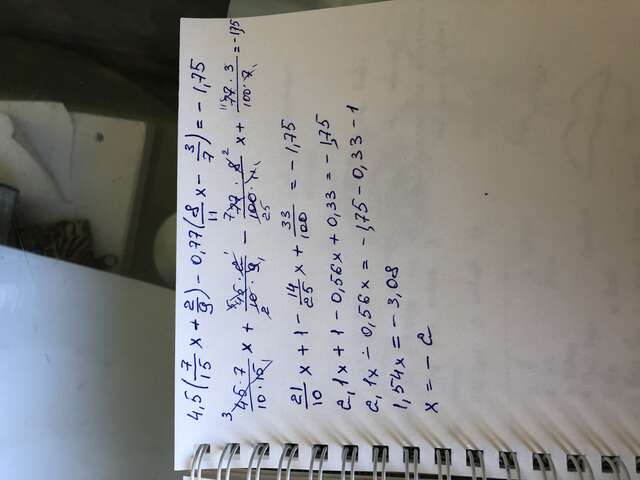 4,5(7/15 x + 2/9) - 0,77(8/11 x - 3/7) = - 1,75
45·7/10·15 x + 45·2/10·9 - 77·8/100·11 x + 77·3/100·7 = -1,75
21/10 x + 1 - 14/25 x + 33/100 = - 1,75
2,1x + 1 - 0,56x + 0,33 = - 1,75
2,1x - 0,56x = - 1,75 - 0,33 - 1
1,54x = - 3,08
x = - 2